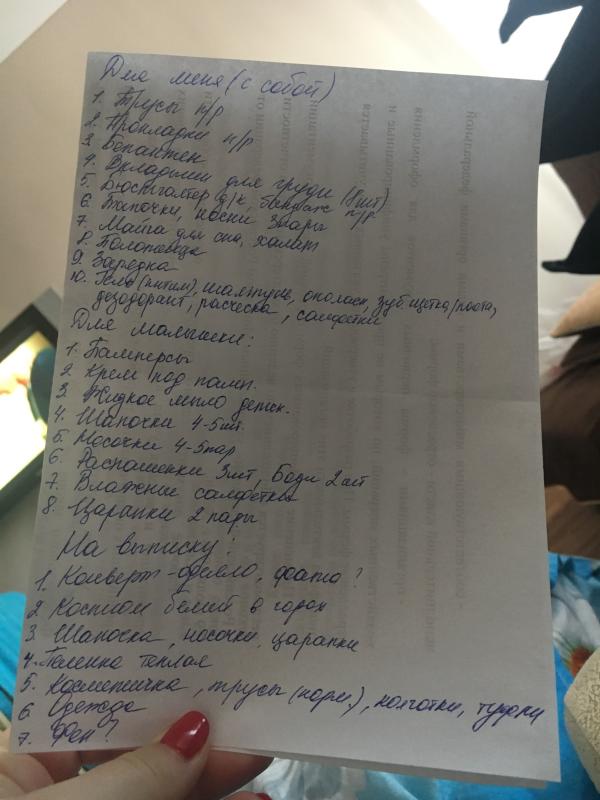 Для меня (с собой)
1. Трусы п/р
2. Прокладки п/р
3. Бепантен
4. Вкладыши для груди (8шт)
5. Бюстгалтер д/к, бандаж п/р
6. Тапочки, носки 3пары
7. Майка для сна, халат
8. Полотенце
9. Зарядка
10. Гель (интим), шампунь, ополаск, зуб. щетка/паста,
дезодорант, расческа, салфетки
Для малышки:
1. Памперсы
2. Крем под памп.
3. Жидкое мыло детск.
4. Шапочки 4-5шт.
5. Носочки 4-5пар
6. Распашенки 3шт, Боди 2шт
7. Влажные салфетки
8. Царапки 2 пары
На выписку:
1. Конверт-одеяло, фото?
2. Костюм белый в горох
3. Шапочка, носочки, царапки
4. Пеленка теплая
5. Косметичка, трусы (норм.), колготки, туфли
6. Одежда
7. Фен?